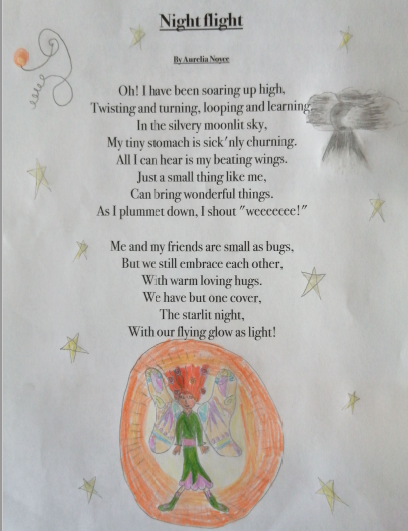 Night flight
By Aurelia Noyce
Oh! I have been soaring up high,
Twisting and turning, looping and learning
In the silvery moonlit sky,
My tiny stomach is sick'nly churning.
All I can hear is my beating wings.
Just a small thing like me,
Can bring wonderful things.
As I plummet down, I shout "weeeeeee!"
Me and my friends are small as bugs,
But we still embrace each other,
With warm loving hugs.
We have but one cover,
The starlit night,
With our flying glow as light!